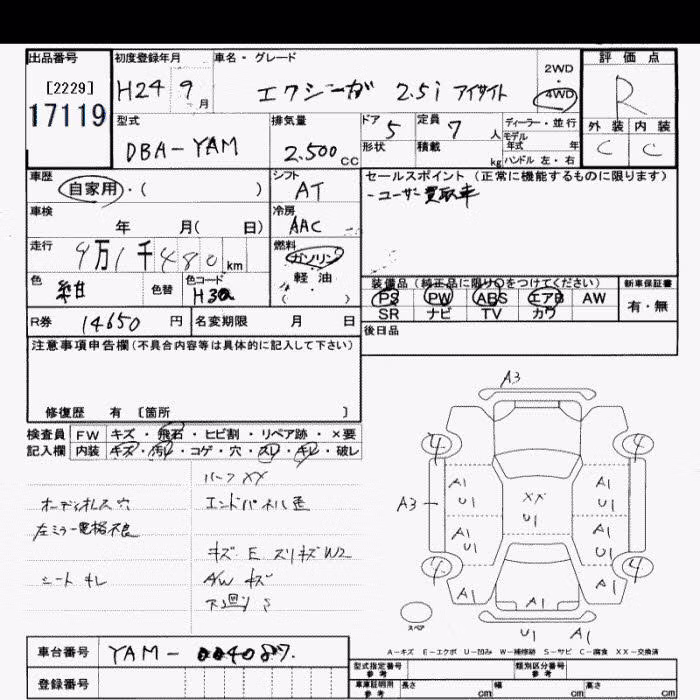 出品番号
[2229]
17119
初度登録年月
H24 9月
車名・グレード
エクシーガ 2.5i アイサイト
2WD
・
4WD
評価点
R
外装 内装
C C
型式
DBA-YAM
排気量
2.500cc
ドア 5
形状
定員 7人
積載 kg
ディーラー・並行
モデル
年式 年
ハンドル 左・右
車歴
自家用・( )
シフト
AT
セールスポイント(正常に機能するものに限ります)
ユーザー買取車
車検
年 月( 日)
冷房
AAC
走行
9万1千480km
燃料
ガソリン
軽油
( )
色
紺
色替
色コード
H3Q
装備品(純正品に限り○をつけてください)
PS PW ABS エアB AW
SR ナビ TV カワ
新車保証書
有・無
R券 14650円
名変期限 月 日
後日品
注意事項申告欄(不具合内容等は具体的に記入して下さい)
修復歴 有 [箇所 ]
検査員
記入欄
FW キズ・飛石・ヒビ割・リペア跡・×要
内装 キズ・汚レ・コゲ・穴・スレ・キレ・破レ
オーディオレス 穴
左ミラー電格不良
シート キレ
バーフ XX
エンドパネル歪
キズ E スリキズ W2
A/W キズ
下回り S
A3
4 4
A1
U1
A3
XX
U1
A1
U1
A1
U1
A1
U1
4 4
A1
A1
A1
U1 A1
スペア
A-キズ E-エクボ U-凹み W-補修跡 S-サビ C-腐食 XX-交換済
車台番号
YAM-004087.
登録番号
型式指定番号
参考
類別区分番号
参考
車庫証明用
参考
長さ cm
幅 cm
高さ cm